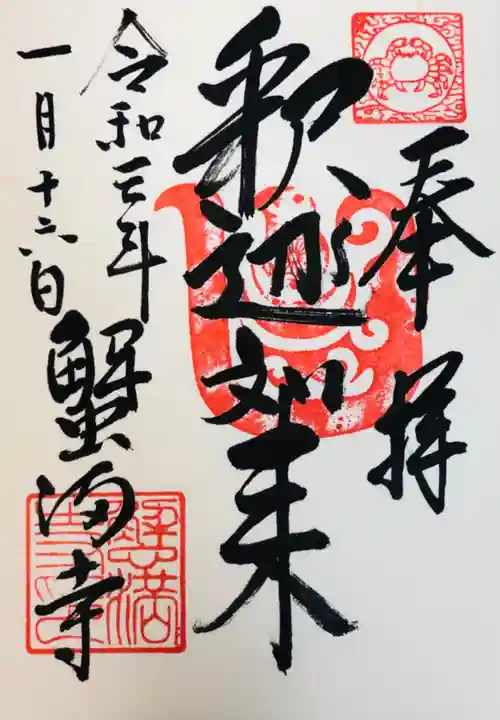 奉拝
釈迦如来
令和三年
一月十六日
蟹満寺
蟹満寺印